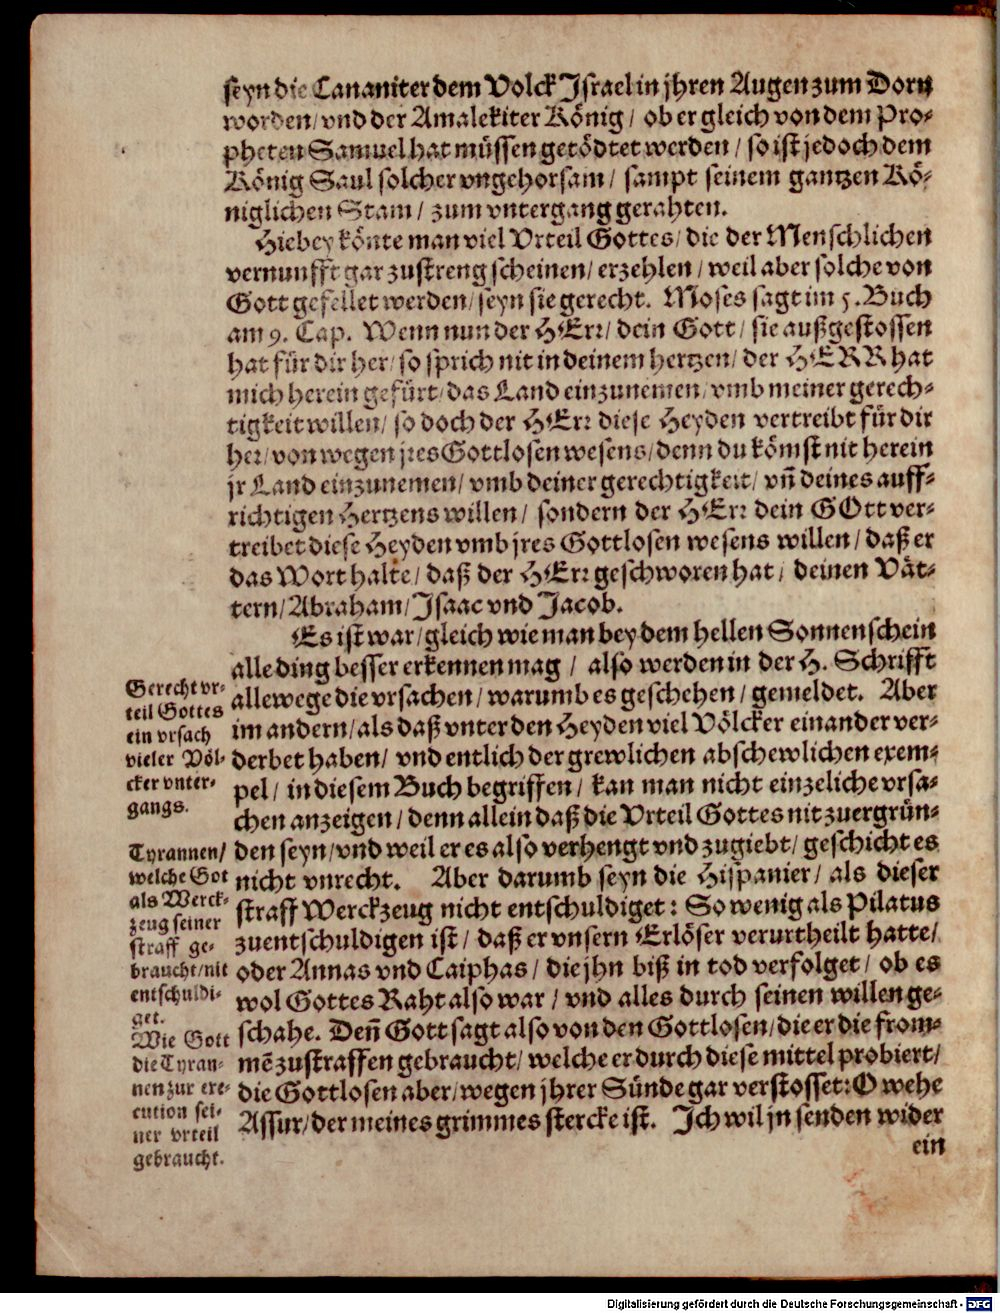 seyn die Cananiter dem Volck Israel in jhren Augen zum Dorn
worden/ vnd der Amalekiter König/ ob er gleich von dem Pro-
pheten Samuel hat müssen getödtet werden/ so ist jedoch dem
König Saul solcher vngehorsam/ sampt seinem gantzen Kö-
niglichen Stam/ zum vntergang gerahten.
Hiebey könte man viel Vrteil Gottes/ die der Menschlichen
vernunfft gar zu streng scheinen/ erzehlen/ weil aber solche von
Gott gefellet werden/ seyn sie gerecht. Moses sagt im 5. Buch
am 9. Cap. Wenn nun der HErr/ dein Gott/ sie außgestossen
hat für dir her/ so sprich nit in deinem hertzen/ der HERR hat
mich herein gefürt/ das Land einzunemen/ vmb meiner gerech-
tigkeit willen/ so doch der HErr diese Heyden vertreibt für dir
her/ von wegen jres Gottlosen wesens/ denn du kömst nit herein
jr Land einzunemen/ vmb deiner gerechtigkeit/ vñ deines auff-
richtigen Hertzens willen/ sondern der HErr dein GOtt ver-
treibet diese Heyden vmb jres Gottlosen wesens willen/ daß er
das Wort halte/ daß der HErr geschworen hat/ deinen Vät-
tern/ Abraham/ Isaac vnd Jacob.
Es ist war/ gleich wie man bey dem hellen Sonnenschein
alle ding besser erkennen mag/ also werden in der H. Schrifft
allewege die vrsachen/ warumb es geschehen/ gemeldet. Aber
im andern/ als daß vnter den Heyden viel Völcker einander ver-
derbet haben/ vnd entlich der grewlichen abschewlichen exem-
pel/ in diesem Buch begriffen/ kan man nicht einzeliche vrsa-
chen anzeigen/ denn allein daß die Vrteil Gottes nit zuergrün-
den seyn/ vnd weil er es also verhengt vnd zugiebt/ geschicht es
nicht vnrecht. Aber darumb seyn die Hispanier/ als dieser
straff Werckzeug nicht entschuldiget: So wenig als Pilatus
zuentschuldigen ist/ daß er vnsern Erlöser verurtheilt hatte/
oder Annas vnd Caiphas/ die jhn biß in tod verfolget/ ob es
wol Gottes Raht also war/ vnd alles durch seinen willen ge-
schahe. Deñ Gott sagt also von den Gottlosen/ die er die from-
mẽ zustraffen gebraucht/ welche er durch diese mittel probiert/
die Gottlosen aber/ wegen jhrer Sünde gar verstosset: O wehe
Assur/ der meines grimmes stercke ist. Ich wil jn senden wider
ein
Gerecht vr-
teil Gottes
ein vrsach
vieler Völ-
cker vnter-
gangs.
Tyrannen/
welche Got
als Werck-
zeug seiner
straff ge-
braucht/ nit
entschuldi-
get.
Wie Gott
die Tyran-
nen zur exe-
cution sei-
ner vrteil
gebraucht.
Digitalisierung gefördert durch die Deutsche Forschungsgemeinschaft - DFG